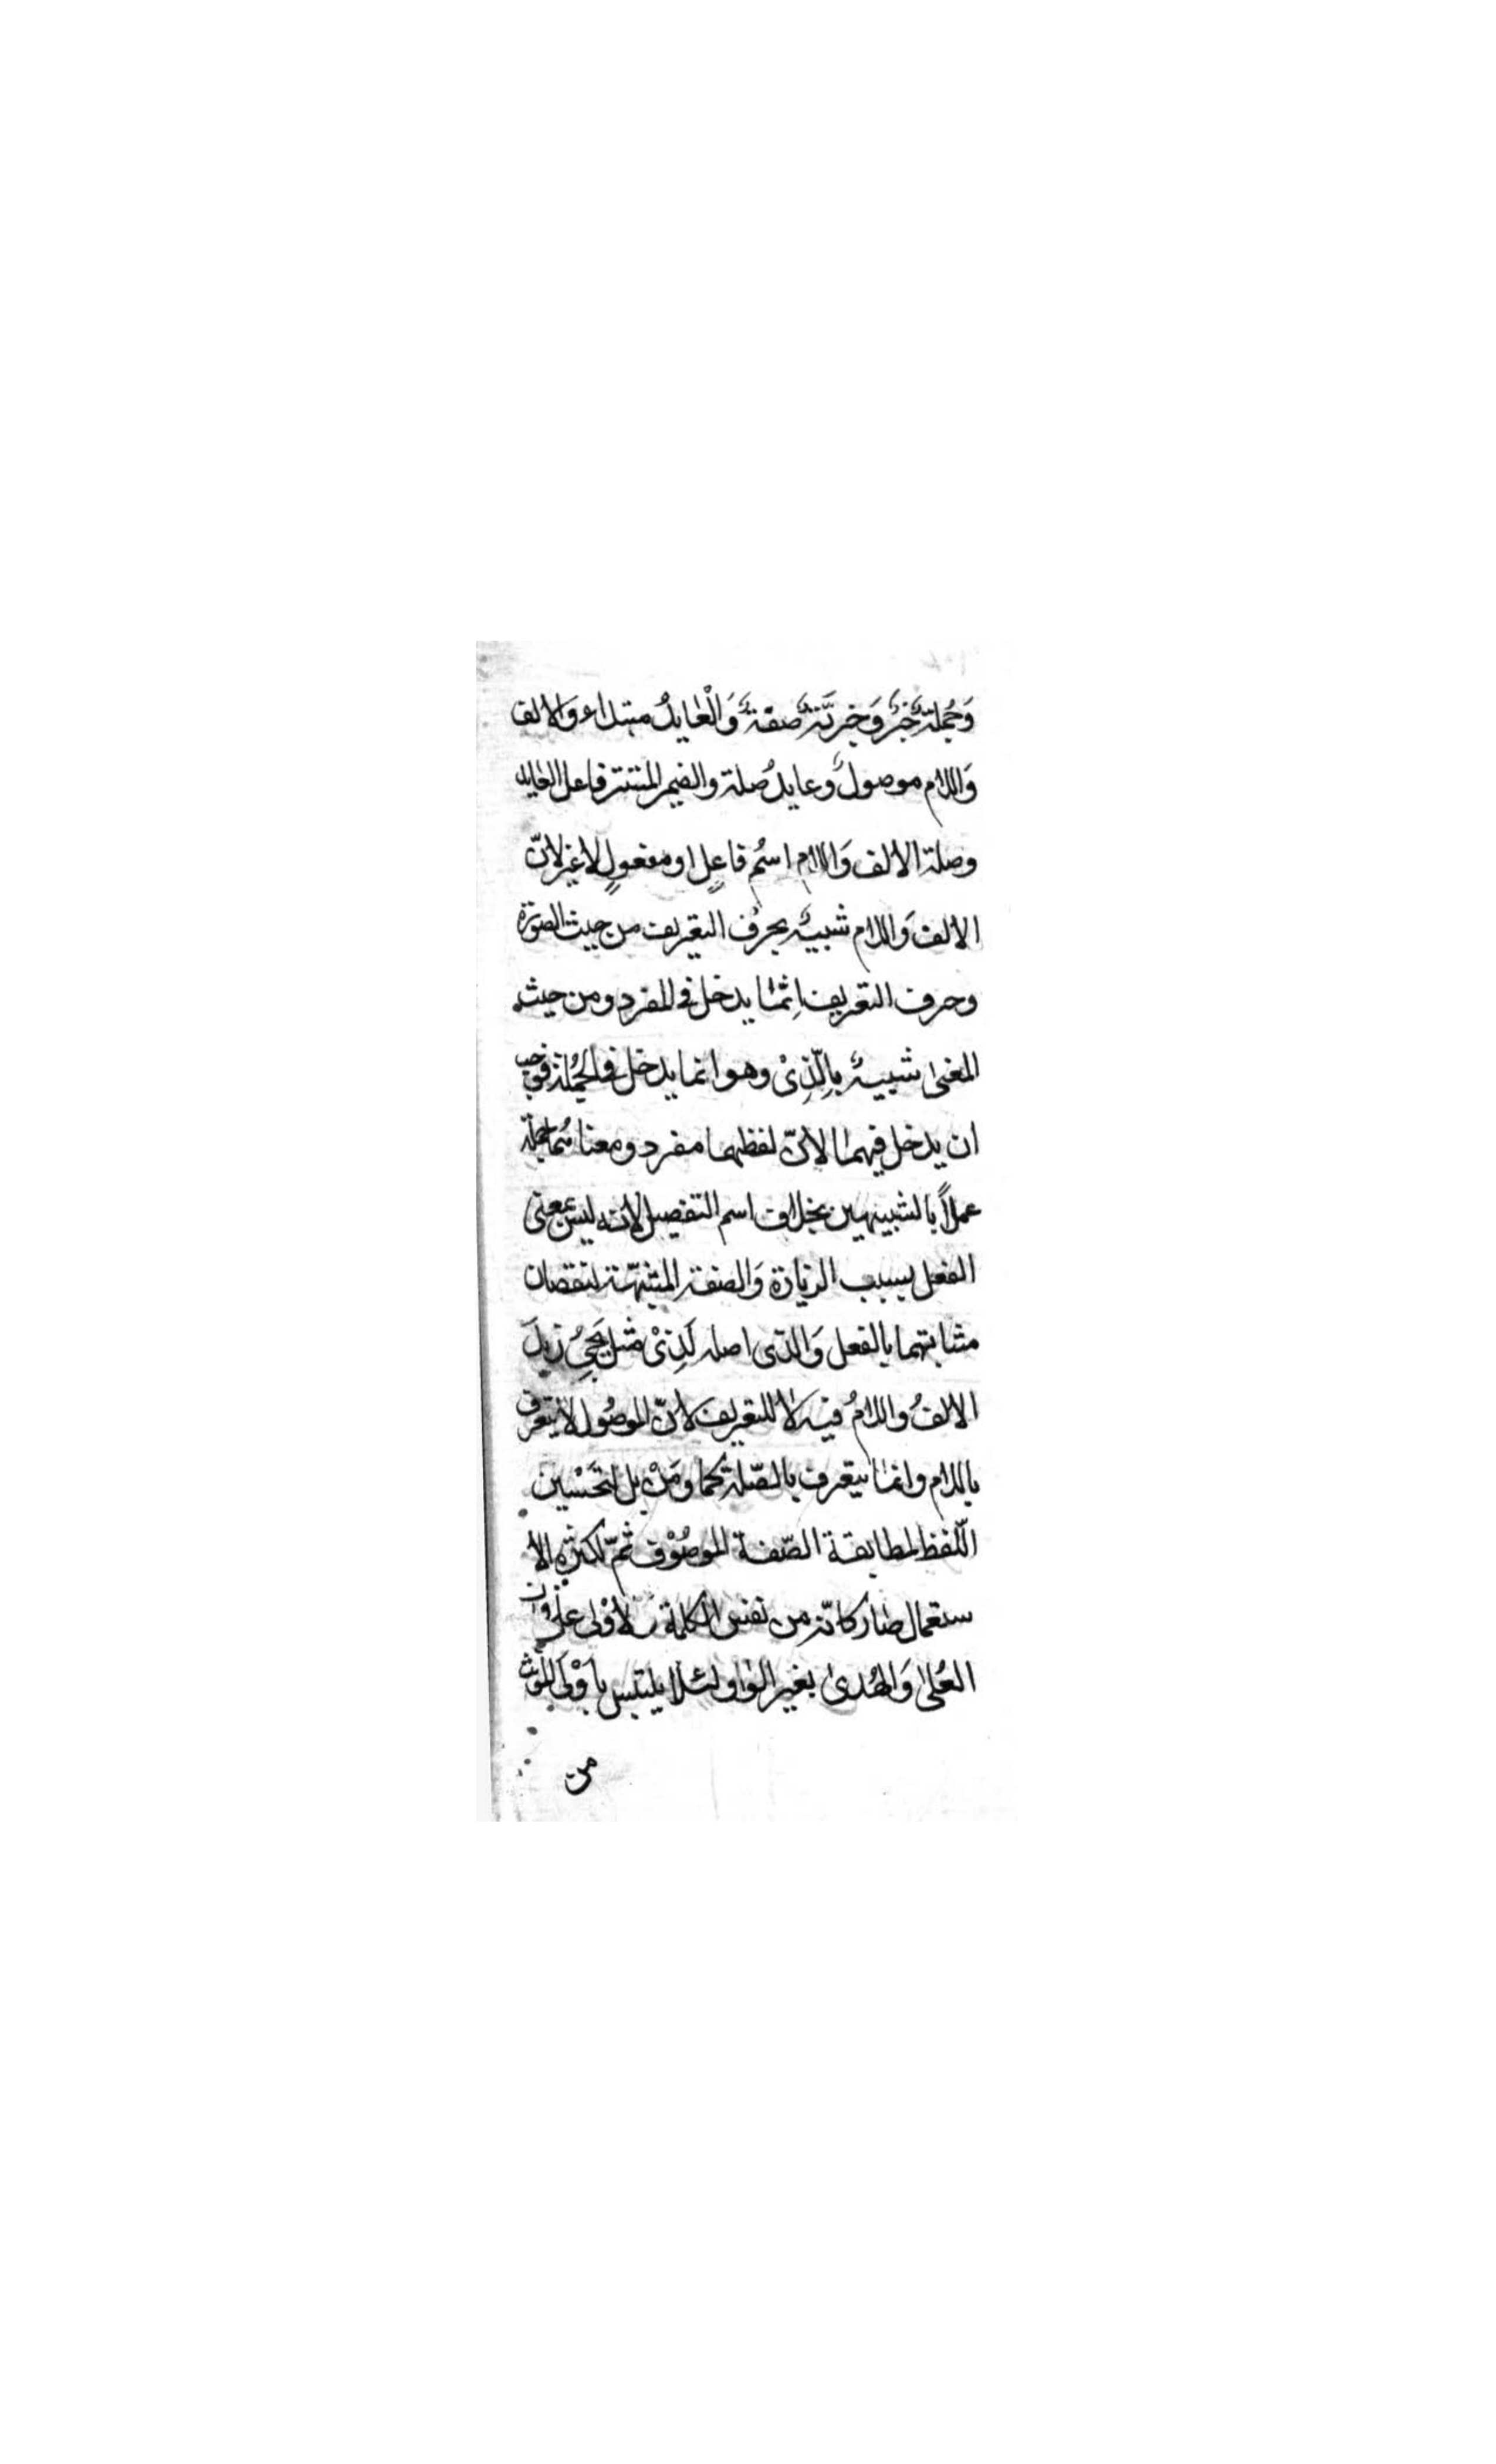 وَجُملةٌ خبرٌ وَخبريَّةٌ صفةٌ وَالْعايدُ مبتداء وَالالف
وَاللام موصولٌ وعايدُ صلة والضمير المستتر فاعل العايد
وصلة الالف وَاللام اسمُ فاعلٍ او مفعولٍ لاغير لانّ
الالف وَاللام شبيهٌ بحرف التعريف من حيث الصورة
وحرف التعريف اِنّما يدخل في المفرد ومن حيث
المعنى شبيهٌ بالَّذِىْ وهو انما يدخل في الجُملة فوجب
ان يدخل فيهما لانّ لفظهما مفرد ومعناهُما جملة
عملاً بالشبيهين بخلاف اسم التفضيل لانه ليس بمعنى
الفعل بسبب الزيادة وَالصفة المشبهّة لنقصان
مشابهتهما بالفعل وَالذى اصله لَذِىْ مثل يَجِىُ زيدَ
الالفُ واللامُ فيه لا للتعريف لانّ الموصُول لا يتعرف
باللام وانما يتعرف بالصّلة كما ومَنْ بل لتحَسْين
اللّفظ لمطابقة الصّفة الموصُوْف ثمّ لكثرة الا
ستعمال صار كانّه من نفس الكلمة لاوْلى على وزن
العُلىٰ وَالهُدىٰ بغير الواو لئلا يلتبس باَوْلى المؤنث
من